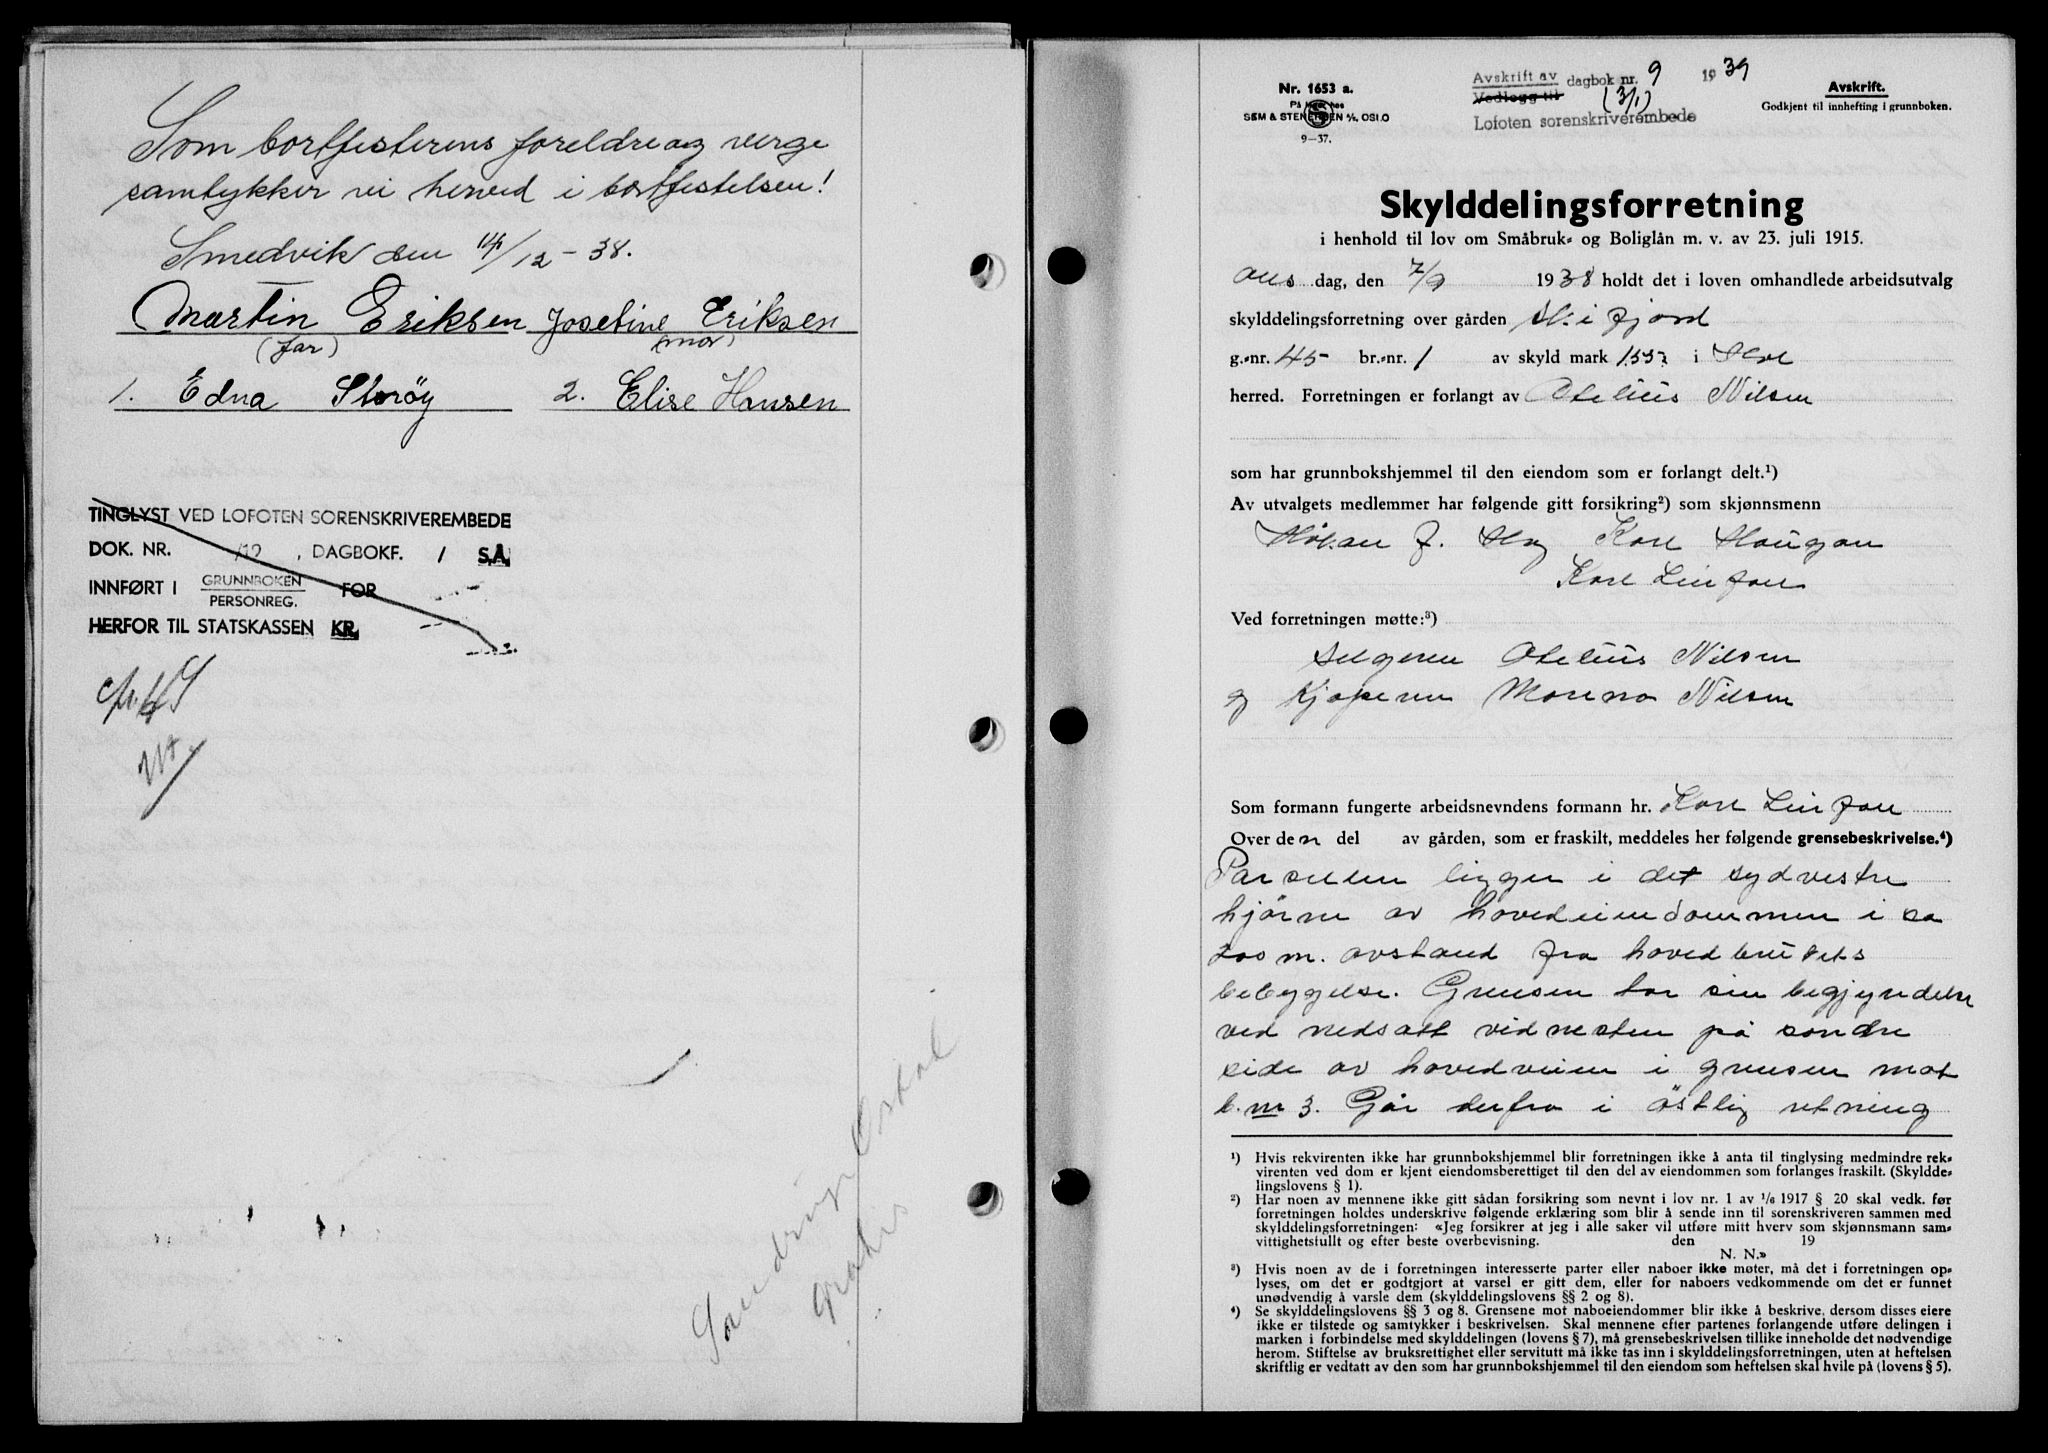 Som bortfesterens foreldre og verge
samtykker vi herved i bortfestelsen!
Smedvik den 14/12-38.
Martin Eriksen Josefine Eriksen
(far) (mor)
1. Edna Storöy 2. Elise Hansen
TINGLYST VED LOFOTEN SORENSKRIVEREMBEDE
DOK. NR. /12 , DAGBOKF. / S.Å.
INNFØRT I GRUNNBOKEN FOR
PERSONREG.
HERFOR TIL STATSKASSEN KR.
gratis
Nr. 1653 a.
På lager hos
SEM & STENERSEN A/S, OSLO
9—37.
Avskrift av dagbok nr. 9 1939
Vedlegg til (3/1)
Lofoten sorenskriverembede
Avskrift.
Godkjent til innhefting i grunnboken.
Skylddelingsforretning
i henhold til lov om Småbruk- og Boliglån m. v. av 23. juli 1915.
Ons dag, den 7/9 1938 holdt det i loven omhandlede arbeidsutvalg
skylddelingsforretning over gården Skifjord
g.-nr. 45 br.-nr. 1 av skyld mark 1.55 i Hol
herred. Forretningen er forlangt av Otelius Nilsen
som har grunnbokshjemmel til den eiendom som er forlangt delt.¹)
Av utvalgets medlemmer har følgende gitt forsikring²) som skjønnsmenn
Håkan J. Hog Karl Haugan
Karl Linjan
Ved forretningen møtte:³)
Selgeren Otelius Nilsen
og Kjøperen Nilsen
Som formann fungerte arbeidsnevndens formann hr. Karl Linjan
Over den del av gården, som er fraskilt, meddeles her følgende grensebeskrivelse.⁴)
Parsellen ligger i det sydvestre
hjörne av hovedeiendommen i ca
200 m. avstand fra hovedbrukets
bebyggelse. Grensen har sin begjyndelse
ved nedsatt vidnesten på söndre
side av hovedveien i grensen mot
b.nr 3. Går derfra i östlig retning
¹) Hvis rekvirenten ikke har grunnbokshjemmel blir forretningen ikke å anta til tinglysing medmindre rek-
virenten ved dom er kjent eiendomsberettiget til den del av eiendommen som forlanges fraskilt. (Skyldde-
lingslovens § 1).
²) Har noen av mennene ikke gitt sådan forsikring som nevnt i lov nr. 1 av 1/6 1917 § 20 skal vedk. før
forretningen holdes underskrive følgende erklæring som blir å sende inn til sorenskriveren sammen med
skylddelingsforretningen: «Jeg forsikrer at jeg i alle saker vil utføre mitt hverv som skjønnsmann sam-
vittighetsfullt og efter beste overbevisning. den 19
N. N.»
³) Hvis noen av de i forretningen interesserte parter eller naboer ikke møter, må det i forretningen op-
lyses, om det er godtgjort at varsel er gitt dem, eller for naboers vedkommende om det er funnet
unødvendig å varsle dem (skylddelingslovens §§ 2 og 8).
⁴) Se skylddelingslovens §§ 3 og 8. Grensene mot naboeiendommer blir ikke å beskrive, dersom disses eiere
ikke er tilstede og samtykker i beskrivelsen. Skal mennene efter partenes forlangende utføre delingen i
marken i forbindelse med skylddelingen (lovens § 7), må grensebeskrivelsen tillike inneholde det nødvendige
herom. Stiftelse av bruksrettighet eller servitutt må ikke tas inn i skylddelingsforretningen, uten at heftelsen
skriftlig er vedtatt av den som har grunnbokshjemmel til den eiendom som heftelsen skal hvile på (lovens § 5).